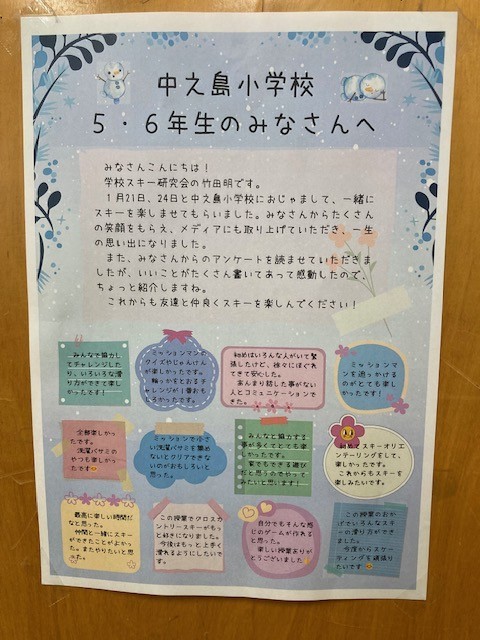 中之島小学校
5・6年生のみなさんへ
みなさんこんにちは！
学校スキー研究会の竹田明です。
1月21日、24日と中之島小学校におじゃまして、一緒に
スキーを楽しませてもらいました。みなさんからたくさん
の笑顔をもらえ、メディアにも取り上げていただき、一生
の思い出になりました。
また、みなさんからのアンケートを読ませていただきま
したが、いいことがたくさん書いてあって感動したので、
ちょっと紹介しますね。
これからも友達と仲良くスキーを楽しんでください！
みんなで協力し
てチャレンジした
り、いろいろな滑
り方ができて楽し
かったです！
ミッションマンの
クイズやじゃんけん
が楽しかったです。
輪っかをとおるチャ
レンジが1番おもし
ろかったです。
初めはいろんな人がいて緊
張したけど、徐々にほぐれ
てきて安心した。
あんまり話した事がない
人とコミュニケーションで
きた。
ミッションマ
ンを追っかける
のがとても楽し
かったです！
全部楽しかっ
たです。
洗濯バサミの
やつも楽しかっ
たです
ミッションで小さ
い洗濯バサミを集め
ないとクリアできな
いのがおもしろいと
思った。
みんなと協力する
事が多くてとても楽
しかったです。
家でもできる遊び
だと思うのでやって
みたいと思います！
初めてスキーオリエ
ンテーリングをして、
楽しかったです。
これからもスキーを
楽しみたいです。
最高に楽しい時間!!だ
なと思った。
仲間と一緒にスキー
ができたことがよかっ
た。またやりたいと思っ
た。
この授業でクロスカ
ントリースキーがもっ
と好きになりました。
今後はもっと上手く
滑れるようにしたいで
す。
自分でもそんな感
じのゲームが作れる
と思った。
楽しい授業ありが
とうございました
この授業のおか
げでいろんなスキ
ーの滑り方ができ
ました。
今度からスケー
ティングを頑張り
たいです